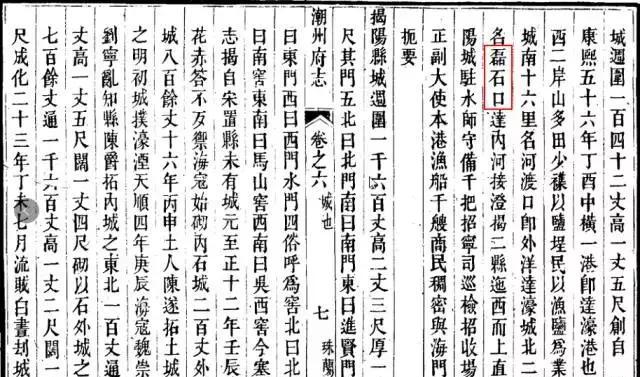 城週圍一百四十二丈高一丈五尺創自
康熙五十六年丁酉中橫一港卽達濠港也
西二岸山多田少以鹽埕民以漁鹽爲業
城南十六里名河渡口卽外洋達濠城北二
名磊石口達內河接澄揭二縣迤西而上直
陽城駐水師守備千把招寧司巡檢招收場
正副大使本港漁船千艘商民稠密與海門
扼要
揭陽縣城週圍一千六百丈高二丈三尺厚一
尺其門五北曰北門南曰南門東曰進賢門
潮州府志 卷之六 城池 七 珠蘭
曰東門西曰西門水門四俗呼爲窖曰北
曰南窖東南曰馬山窖西南曰吳西窖今塞
志揭自宋置縣未有城元至正十二年壬辰
花赤答不歹禦海寇始砌內石城二百丈外
城八百餘丈十六年丙申土人陳遂拓土城
之明初城撲濠湮天順四年庚辰海寇魏崇
劉寧亂知縣陳爵拓內城之東北一百丈通
丈高一丈五尺闊一丈四尺砌以石外城之
七百餘丈通一千六百丈高一丈二尺闊一
尺成化二十三年丁未七月流賊白晝刼城